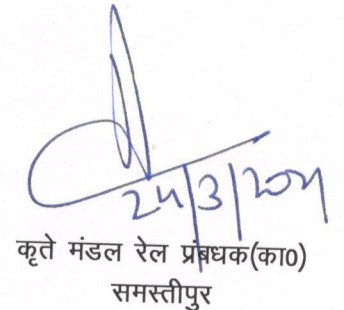 24/3/2021
कृते मंडल रेल प्रबंधक(का0)
समस्तीपुर